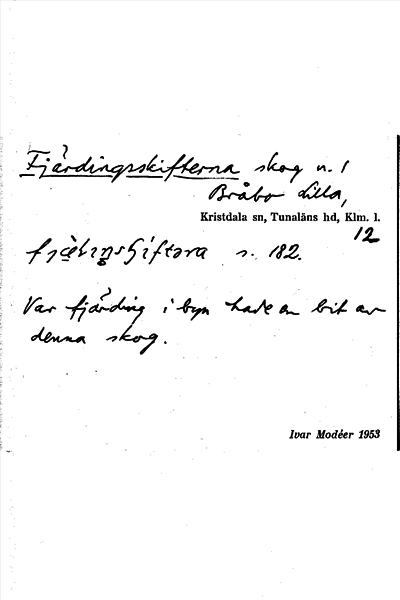 Fjärdingsskifterna skog n. 1
Bråbo Lilla,
Kristdala sn, Tunaläns hd, Klm. l.
12
s. 182.
Var fjärding i byn hade en bit av
denna skog.
Ivar Modéer 1953